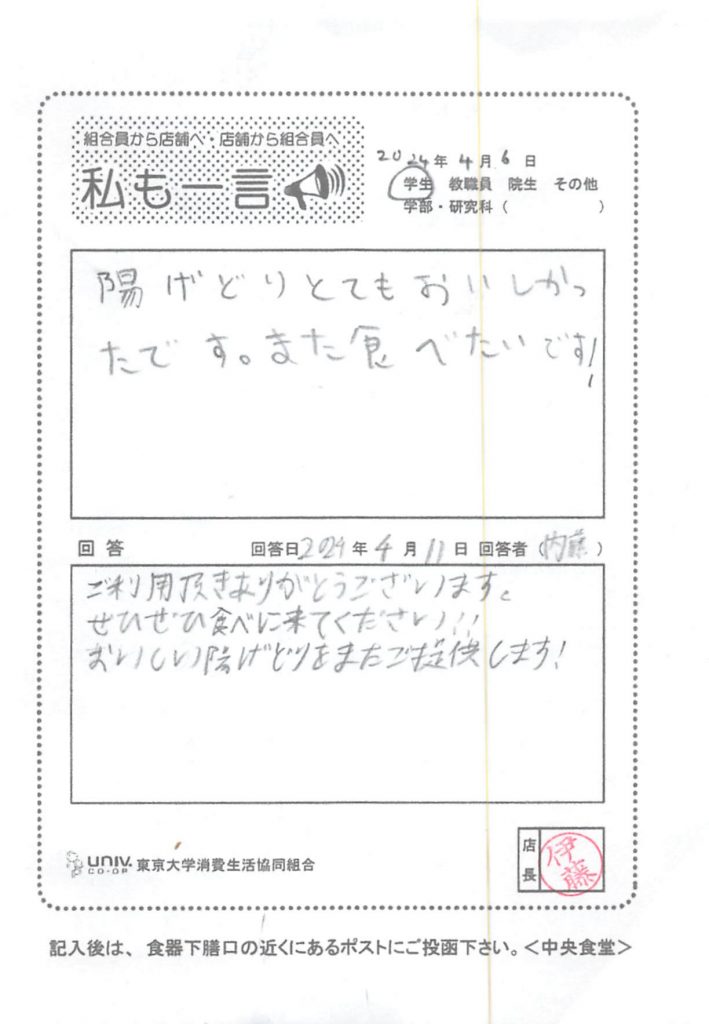 組合員から店舗へ・店舗から組合員へ
私も一言
2024年4月6日
学生 教職員 院生 その他
学部・研究科（ ）
陽げどりとてもおいしかっ
たです。また食べたいです!
回答 回答日2024年4月11日 回答者（内藤）
ご利用頂きありがとうございます。
ぜひぜひ食べに来てください!!
おいしい陽げどりをまたご提供します!
UNIV. CO-OP 東京大学消費生活協同組合
店長 伊藤
記入後は、食器下膳口の近くにあるポストにご投函下さい。＜中央食堂＞